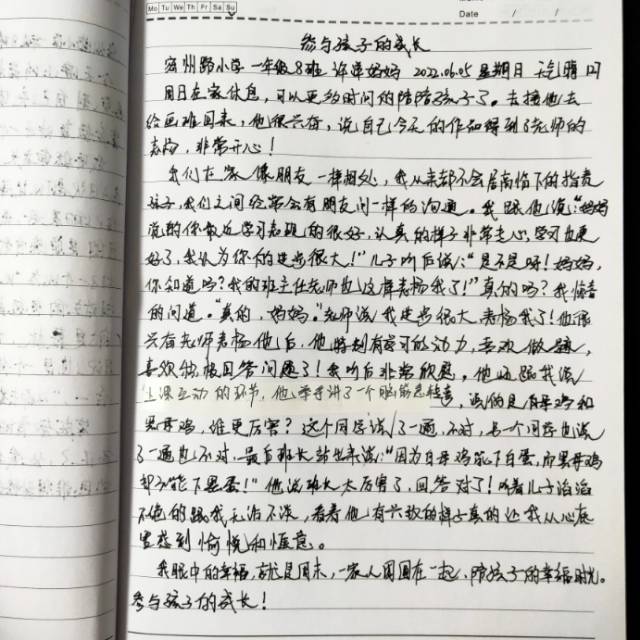 Mo Tu We Th Fr Sa Su
Date / /
参与孩子的成长
宿州路小学一年级8班 许 妈妈 2022.06.05 星期日 天气晴
周日在家休息，可以更多时间的陪陪孩子了。去接他去
绘画班回来，他很兴奋，说自己今天的作品得到了老师的
表扬，非常开心！
我们在家像朋友一样相处，我从来都不会居高临下的指责
孩子，我们之间经常会有朋友间一样的沟通。我跟他说“妈妈
觉的你最近学习表现的很好，认真的样子非常走心，学习也更
好了，我认为你的进步很大！”儿子听后说：“是不是呀！妈妈，
你知道吗？我的班主任老师也这样表扬我了！”真的吗？我惊喜
的问道。“真的，妈妈。”老师说我进步很大，表扬我了！他很
兴奋老师表扬他后，他特别有学习的动力，喜欢做题，
喜欢积极回答问题了！我听后非常欣慰，他还跟我说
上课互动的环节，他举手讲了一个脑筋急转弯，说的是白母鸡和
黑母鸡，谁更厉害？这个同学说了一遍，不对，另一个同学也说
了一遍也不对，最后班长站出来说：“因为白母鸡能下白蛋，而黑母鸡
却不能下黑蛋！”他说班长太厉害了，回答对了！听着儿子滔滔
不绝的跟我无话不谈，看着他有兴致的样子真的让我从心底
里感到愉悦和惬意。
我眼中的幸福，就是周末，一家人围在一起，陪孩子的幸福时光。
参与孩子的成长！